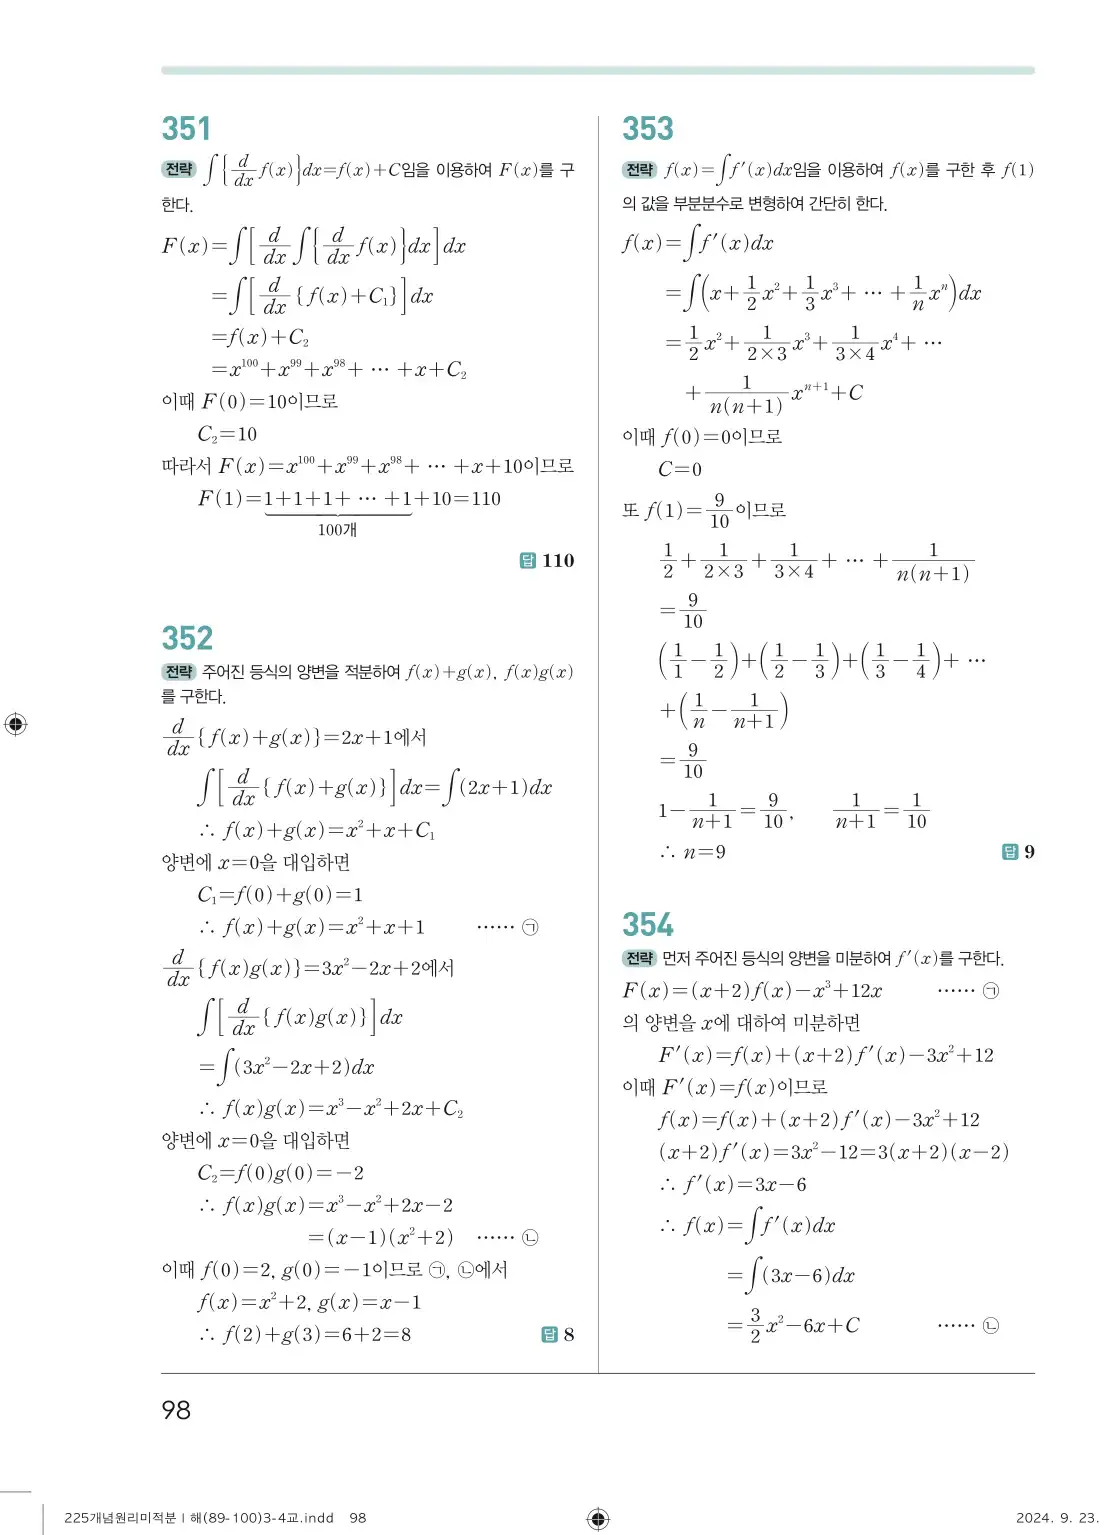 351
전략 ∫{d/dx f(x)}dx=f(x)+C임을 이용하여 F(x)를 구
한다.
F(x)=∫[d/dx ∫{d/dx f(x)}dx]dx
=∫[d/dx {f(x)+C₁}]dx
=f(x)+C₂
=x¹⁰⁰+x⁹⁹+x⁹⁸+ … +x+C₂
이때 F(0)=10이므로
C₂=10
따라서 F(x)=x¹⁰⁰+x⁹⁹+x⁹⁸+ … +x+10이므로
F(1)=1+1+1+ … +1+10=110
100개
답 110
352
전략 주어진 등식의 양변을 적분하여 f(x)+g(x), f(x)g(x)
를 구한다.
d/dx {f(x)+g(x)}=2x+1에서
∫[d/dx {f(x)+g(x)}]dx=∫(2x+1)dx
∴ f(x)+g(x)=x²+x+C₁
양변에 x=0을 대입하면
C₁=f(0)+g(0)=1
∴ f(x)+g(x)=x²+x+1 …… ㉠
d/dx {f(x)g(x)}=3x²-2x+2에서
∫[d/dx {f(x)g(x)}]dx
=∫(3x²-2x+2)dx
∴ f(x)g(x)=x³-x²+2x+C₂
양변에 x=0을 대입하면
C₂=f(0)g(0)=-2
∴ f(x)g(x)=x³-x²+2x-2
=(x-1)(x²+2) …… ㉡
이때 f(0)=2, g(0)=-1이므로 ㉠, ㉡에서
f(x)=x²+2, g(x)=x-1
∴ f(2)+g(3)=6+2=8 답 8
353
전략 f(x)=∫f′(x)dx임을 이용하여 f(x)를 구한 후 f(1)
의 값을 부분분수로 변형하여 간단히 한다.
f(x)=∫f′(x)dx
=∫(x+1/2 x²+1/3 x³+ … +1/n xⁿ)dx
=1/2 x²+1/(2×3) x³+1/(3×4) x⁴+ …
+1/(n(n+1)) xⁿ⁺¹+C
이때 f(0)=0이므로
C=0
또 f(1)=9/10이므로
1/2+1/(2×3)+1/(3×4)+ … +1/(n(n+1))
=9/10
(1/1-1/2)+(1/2-1/3)+(1/3-1/4)+ …
+(1/n-1/(n+1))
=9/10
1-1/(n+1)=9/10, 1/(n+1)=1/10
∴ n=9 답 9
354
전략 먼저 주어진 등식의 양변을 미분하여 f′(x)를 구한다.
F(x)=(x+2)f(x)-x³+12x …… ㉠
의 양변을 x에 대하여 미분하면
F′(x)=f(x)+(x+2)f′(x)-3x²+12
이때 F′(x)=f(x)이므로
f(x)=f(x)+(x+2)f′(x)-3x²+12
(x+2)f′(x)=3x²-12=3(x+2)(x-2)
∴ f′(x)=3x-6
∴ f(x)=∫f′(x)dx
=∫(3x-6)dx
=3/2 x²-6x+C …… ㉡
98
225개념원리미적분Ⅰ해(89-100)3-4교.indd 98
2024. 9. 23.